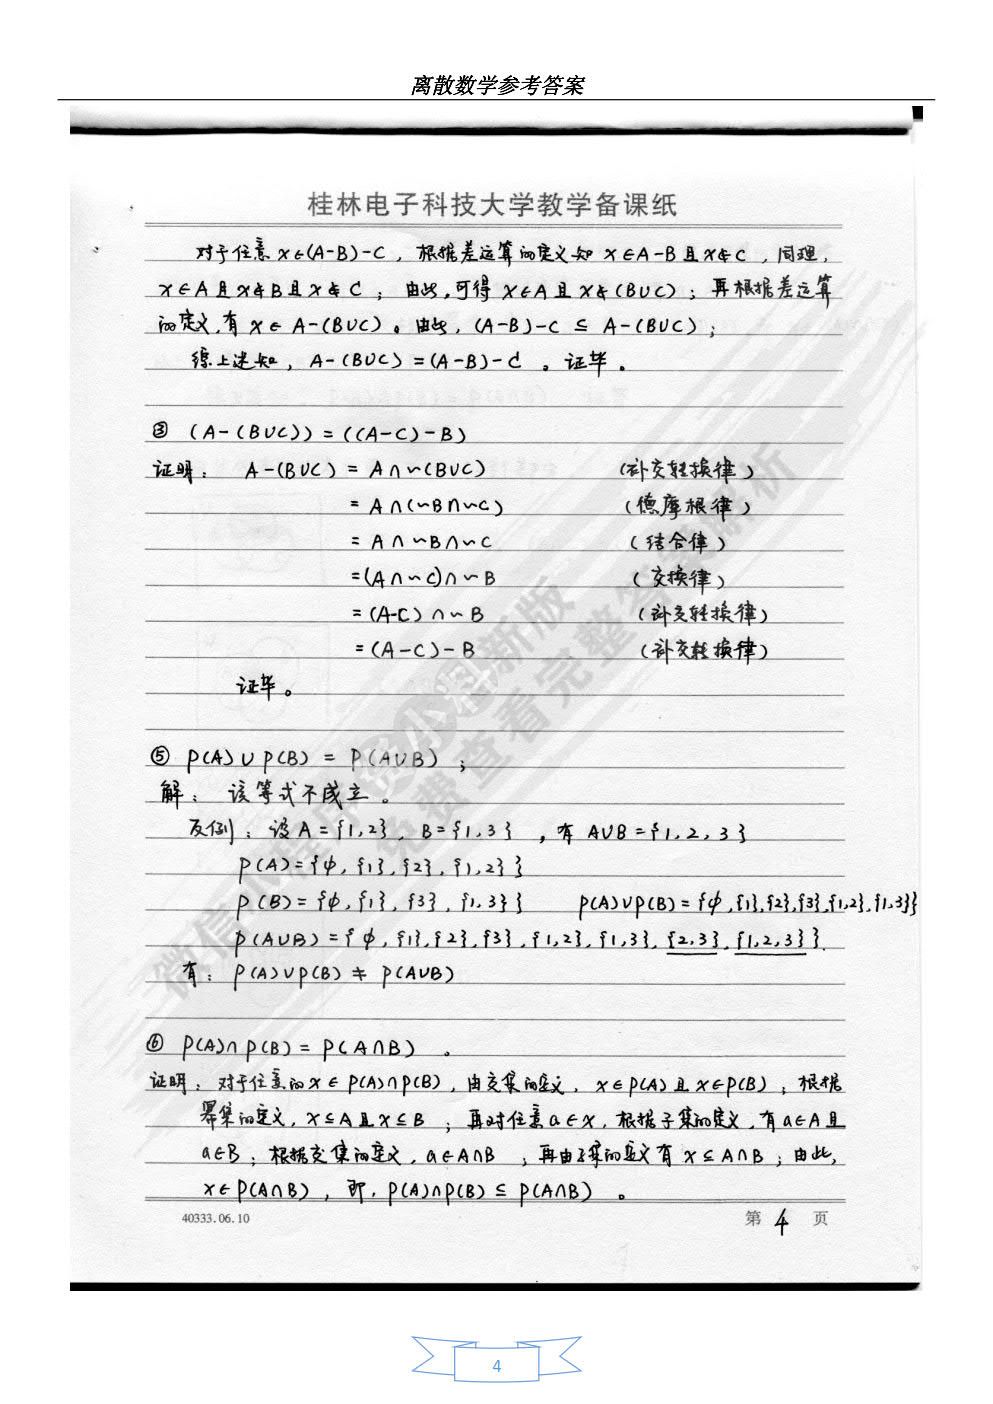 离散数学参考答案
桂林电子科技大学教学备课纸
对于任意x∈(A-B)-C，根据差运算的定义知 x∈A-B且x∉C，同理，
x∈A且x∉B且x∉C；由此，可得x∈A且x∉(B∪C)；再根据差运算
的定义，有x∈A-(B∪C)。由此，(A-B)-C⊆A-(B∪C)；
综上述知，A-(B∪C)=(A-B)-C。证毕。
③ (A-(B∪C))=((A-C)-B)
证明：A-(B∪C)=A∩~(B∪C) (补交转换律)
=A∩(~B∩~C) (德摩根律)
=A∩~B∩~C (结合律)
=(A∩~C)∩~B (交换律)
=(A-C)∩~B (补交转换律)
=(A-C)-B (补交转换律)
证毕。
⑤ P(A)∪P(B)=P(A∪B)；
解：该等式不成立。
反例：设A={1,2}，B={1,3}，有A∪B={1,2,3}
P(A)={φ,{1},{2},{1,2}}
P(B)={φ,{1},{3},{1,3}} P(A)∪P(B)={φ,{1},{2},{3},{1,2},{1,3}}
P(A∪B)={φ,{1},{2},{3},{1,2},{1,3},{2,3},{1,2,3}}.
有：P(A)∪P(B)≠P(A∪B)
⑥ P(A)∩P(B)=P(A∩B)。
证明：对于任意的x∈P(A)∩P(B)，由交集的定义，x∈P(A)且x∈P(B)；根据
幂集的定义，x⊆A且x⊆B；再对任意a∈x，根据子集的定义，有a∈A且
a∈B；根据交集的定义，a∈A∩B；再由子集的定义有x⊆A∩B；由此，
x∈P(A∩B)，即，P(A)∩P(B)⊆P(A∩B)。
40333.06.10 第4页
4